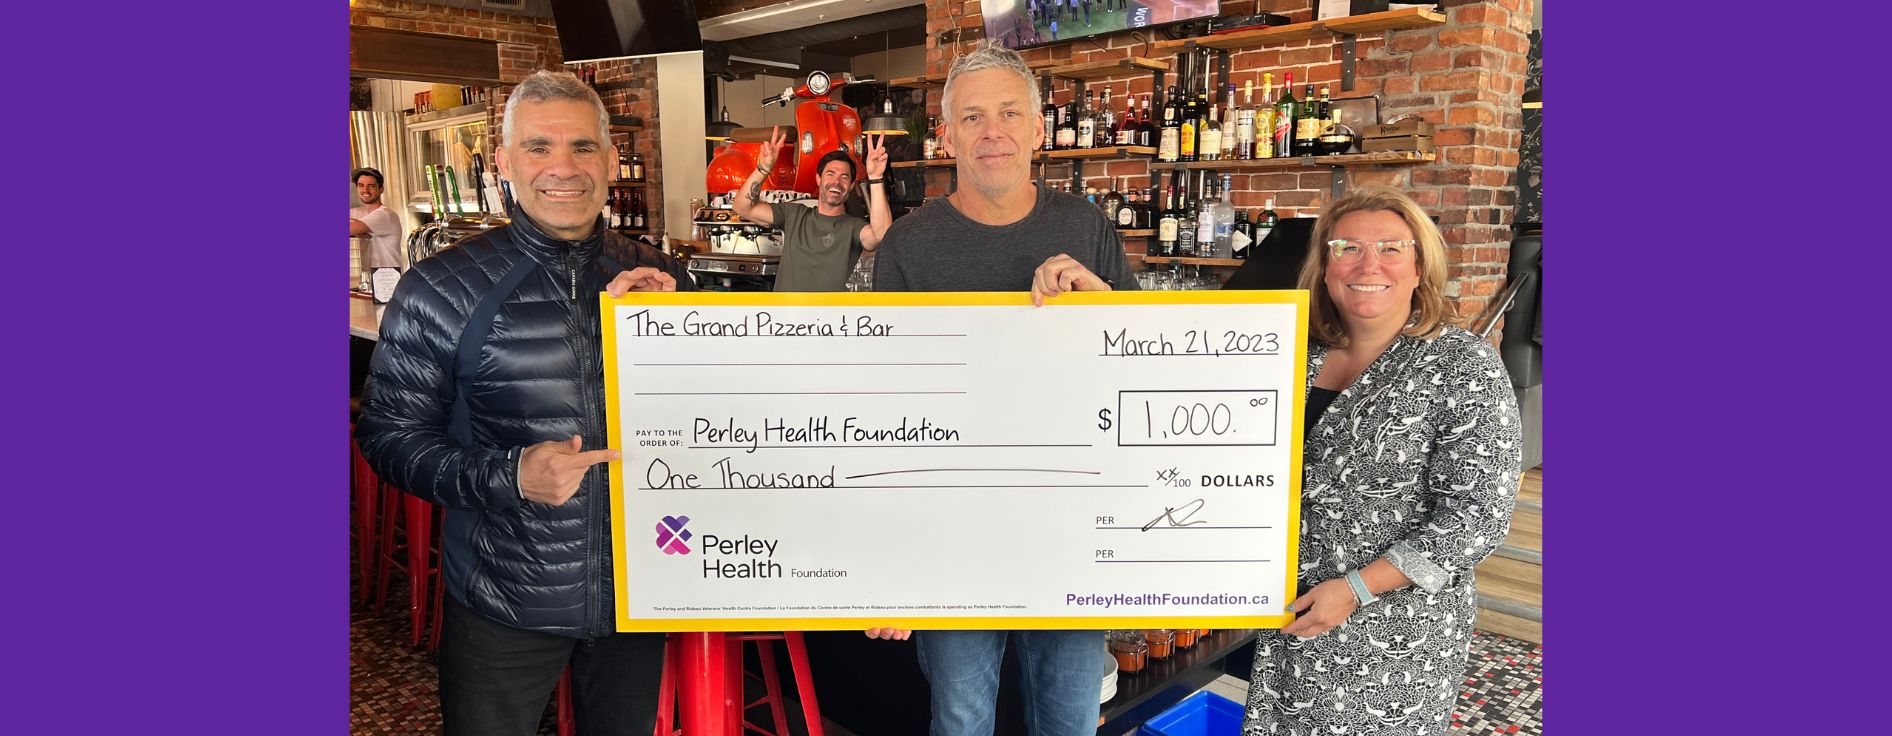 The Grand Pizzeria & Bar
March 21, 2023
PAY TO THE
ORDER OF:
Perley Health Foundation
$ 1,000.00
One Thousand
xx/100 DOLLARS
PER
PER
Perley
Health Foundation
PerleyHealthFoundation.ca
The Perley and Rideau Veterans' Health Centre Foundation / La Fondation du Centre de santé Perley et Rideau pour anciens combattants is operating as Perley Health Foundation.
WOR